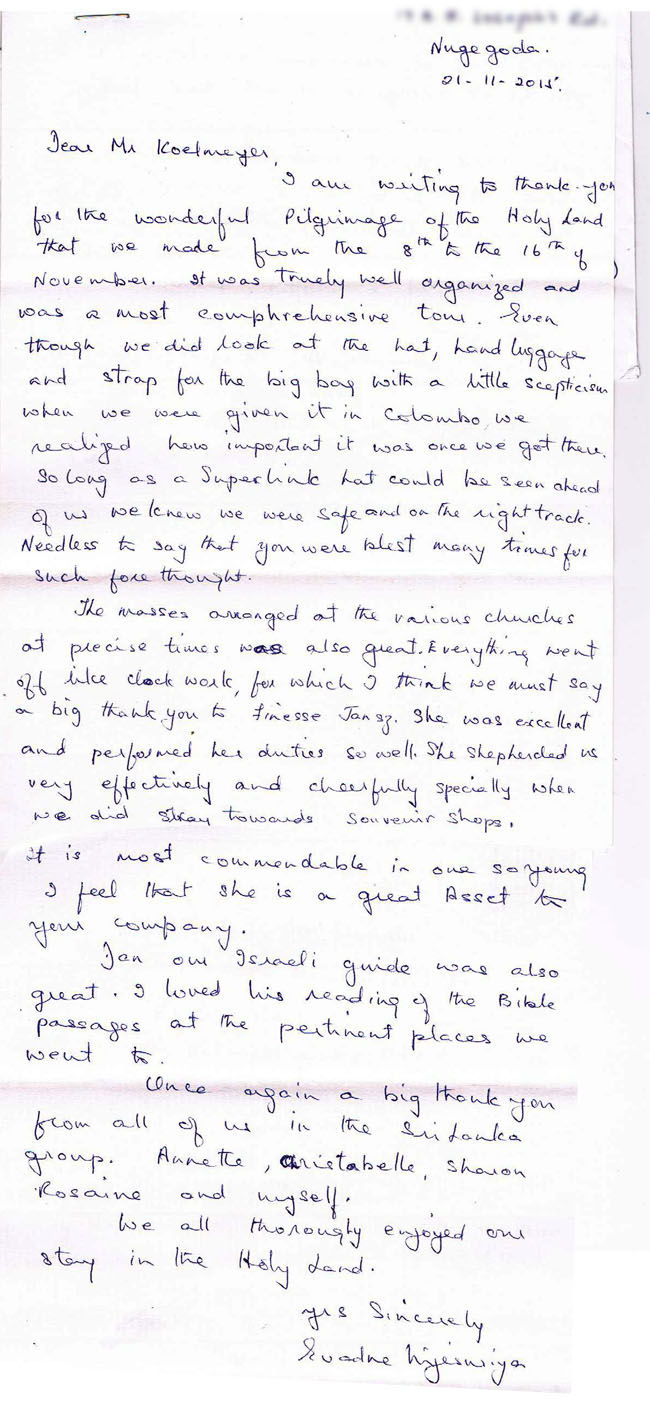 Nugegoda.
21-11-2015.
Dear Mr Koelmeyer,
I am writing to thank-you
for the wonderful Pilgrimage of the Holy Land
that we made from the 8th to the 16th of
November. It was truely well organized and
was a most comphrehensive tour. Even
though we did look at the hat, hand luggage
and strap for the big bag with a little scepticism
when we were given it in Colombo, we
realized how important it was once we got there.
So long as a Superlink hat could be seen ahead
of us we knew we were safe and on the right track.
Needless to say that you were blest many times for
such fore thought.
The masses arranged at the various churches
at precise times was also great. Everything went
off like clock work, for which I think we must say
a big thank you to Finesse Jansz. She was excellent
and performed her duties so well. She shepherded us
very effectively and cheerfully specially when
we did stray towards souvenir shops.
It is most commendable in one so young
I feel that she is a great Asset to
your company.
Jan our Israeli guide was also
great. I loved his reading of the Bible
passages at the pertinent places we
went to.
Once again a big thank you
from all of us in the Sri Lanka
group. Annette, Christabelle, Sharon
Rosaine and myself.
We all thorougly enjoyed our
stay in the Holy Land.
yrs Sincerely
Evadne Wijesuriya